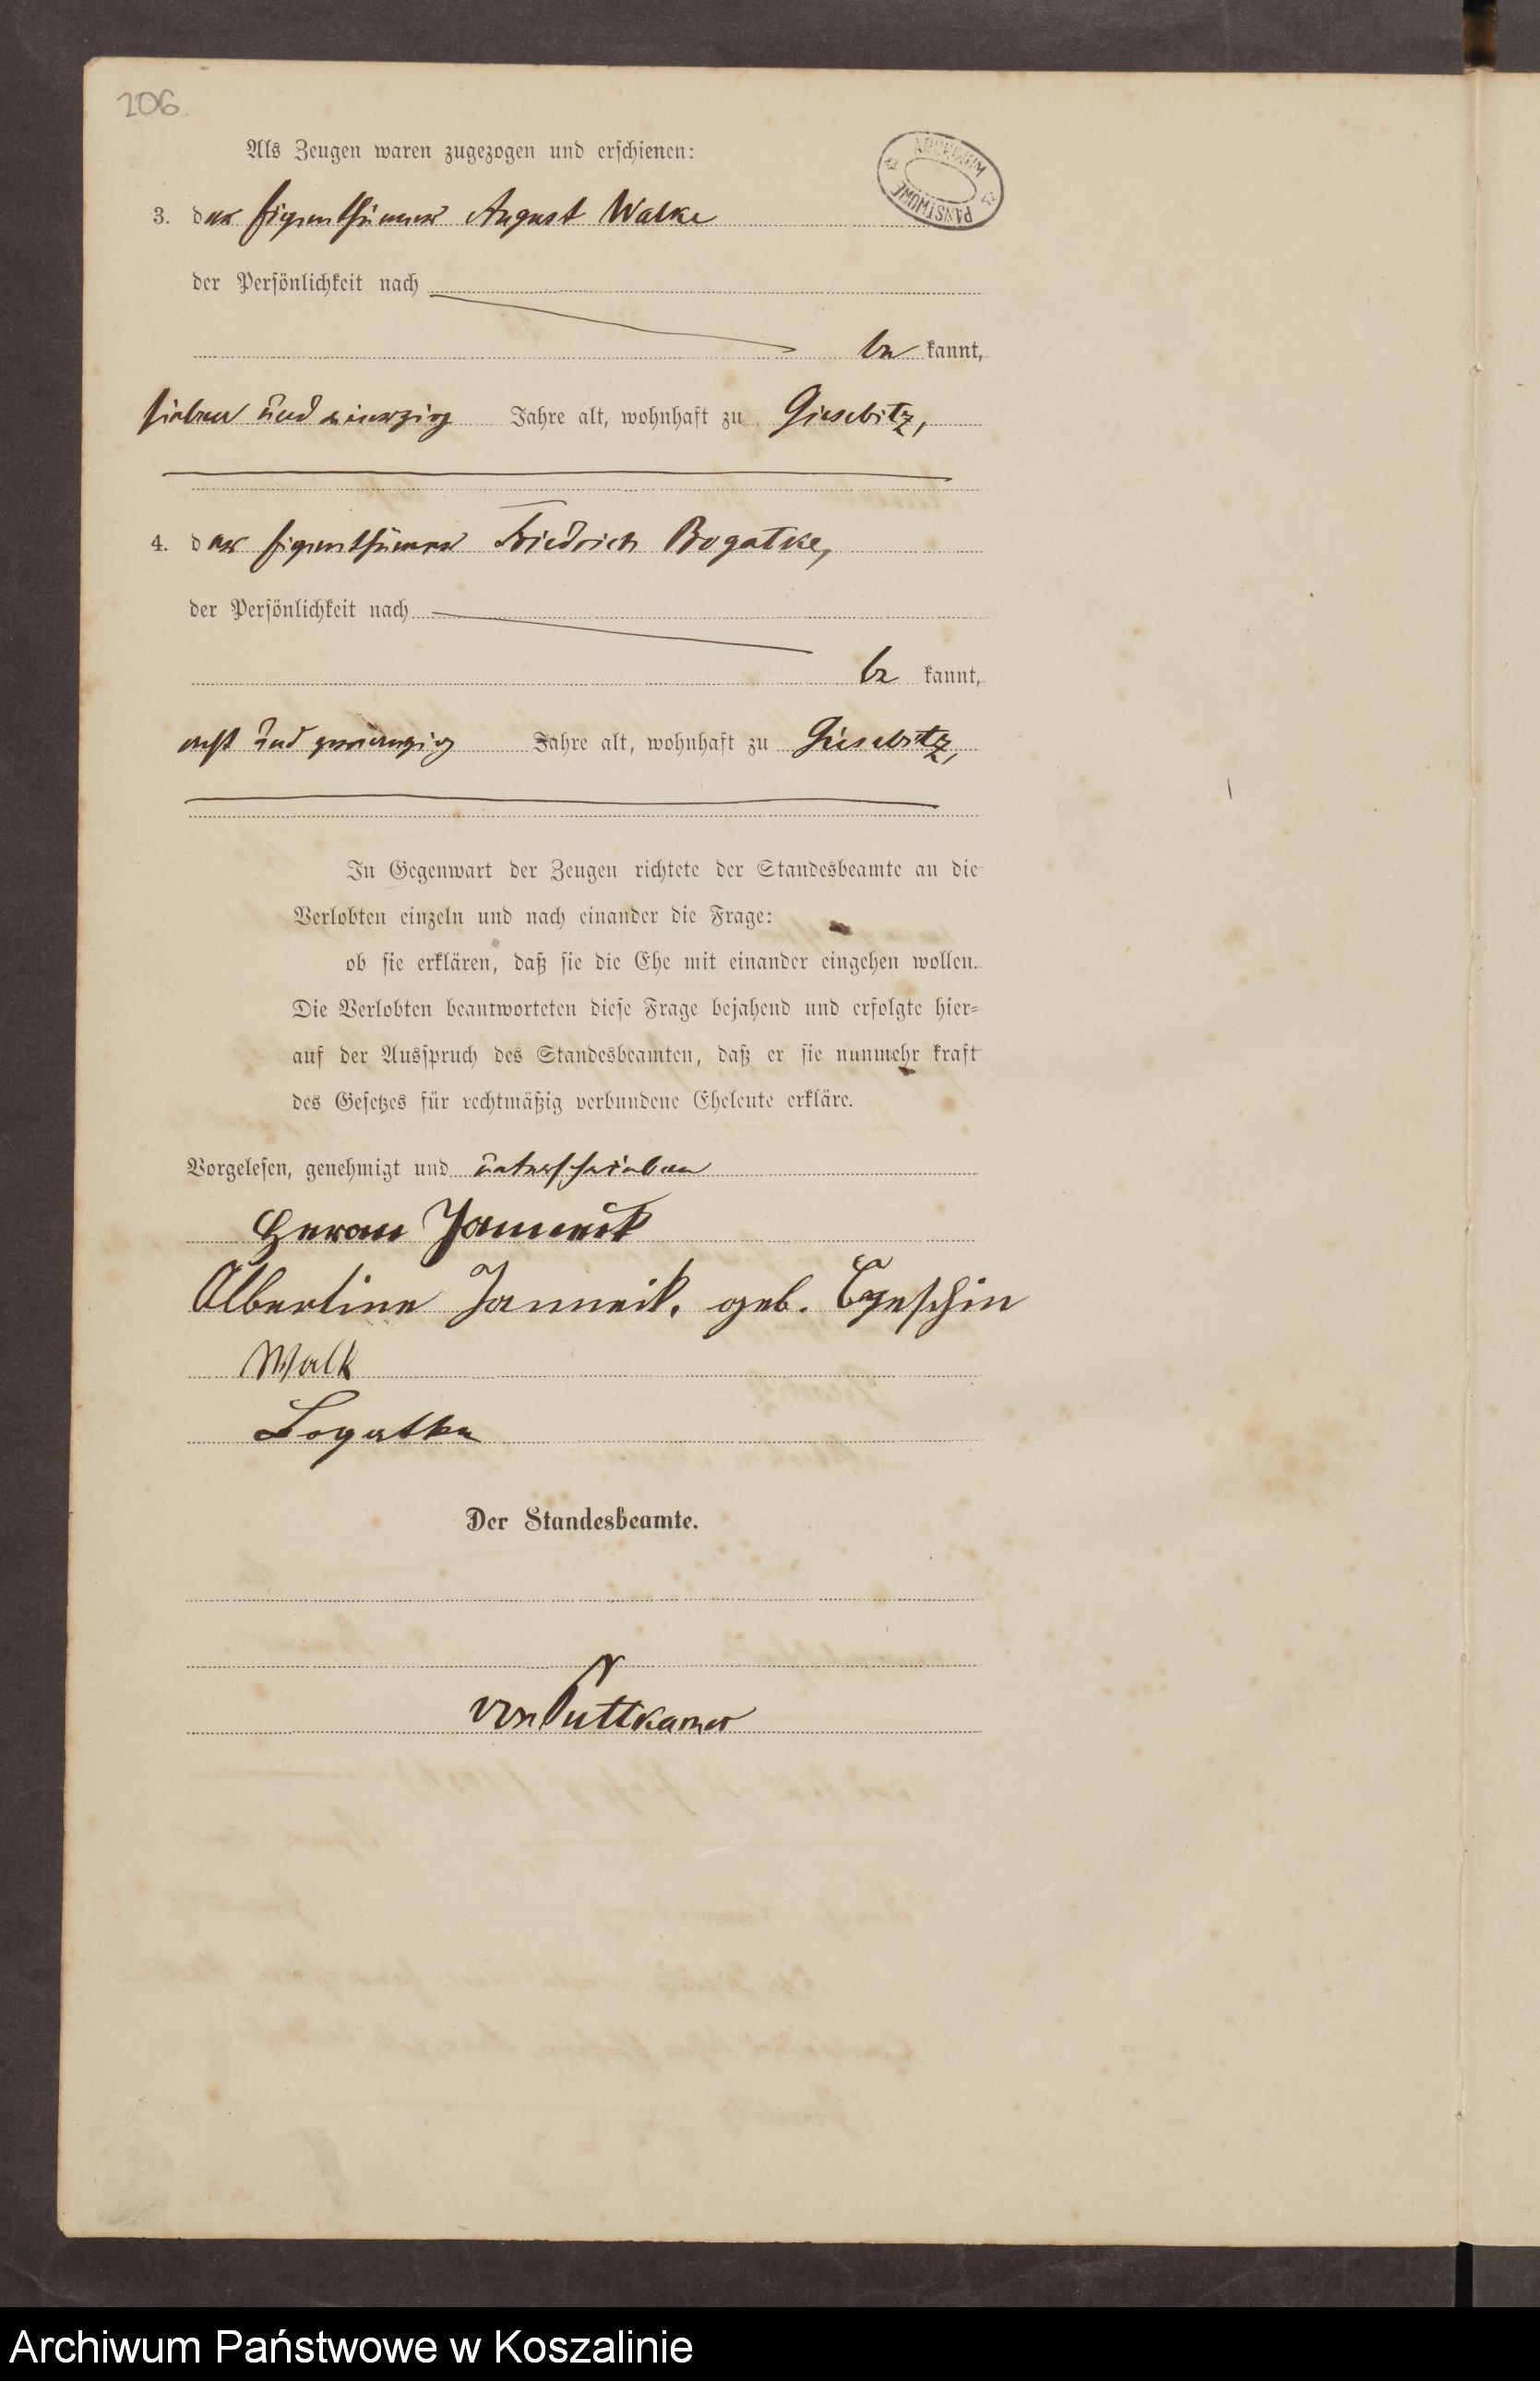 206.
Als Zeugen waren zugezogen und erschienen:
ARCHIWUM PAŃSTWOWE
3. der Eigenthümer August Walke
der Persönlichkeit nach
be kannt,
sieben und vierzig Jahre alt, wohnhaft zu Giesebitz,
4. der Eigenthümer Friedrich Bogatke,
der Persönlichkeit nach
be kannt,
acht und zwanzig Jahre alt, wohnhaft zu Giesebitz,
In Gegenwart der Zeugen richtete der Standesbeamte an die
Verlobten einzeln und nach einander die Frage:
ob sie erklären, daß sie die Ehe mit einander eingehen wollen.
Die Verlobten beantworteten diese Frage bejahend und erfolgte hier=
auf der Ausspruch des Standesbeamten, daß er sie nunmehr kraft
des Gesetzes für rechtmäßig verbundene Eheleute erkläre.
Vorgelesen, genehmigt und unterschrieben
Janneik
Albertine Janneik, geb.
Walk
Bogatke
Der Standesbeamte.
von Puttkamer
Archiwum Państwowe w Koszalinie